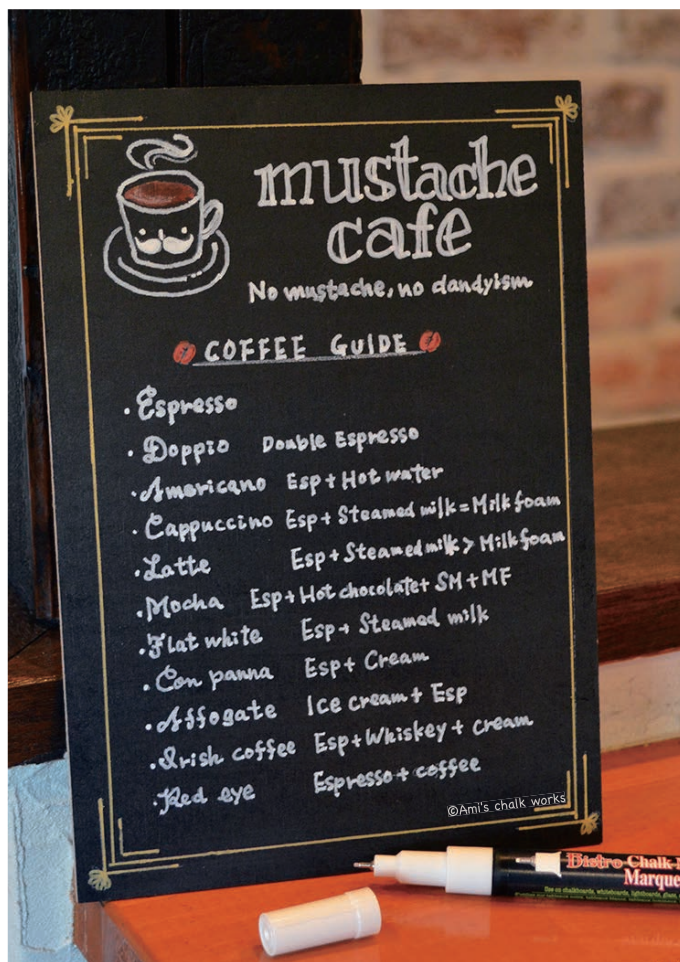 mustache
cafe
No mustache, no dandyism
COFFEE GUIDE
· Espresso
· Doppio Double Espresso
· Americano Esp + Hot water
· Cappuccino Esp + Steamed milk = Milk foam
· Latte Esp + Steamed milk > Milk foam
· Mocha Esp + Hot chocolate + SM + MF
· Flat white Esp + Steamed milk
· Con panna Esp + Cream
· Affogate Ice cream + Esp
· Irish coffee Esp + Whiskey + cream
· Red eye Espresso + coffee
©Ami's chalk works
Bistro Chalk
Marque